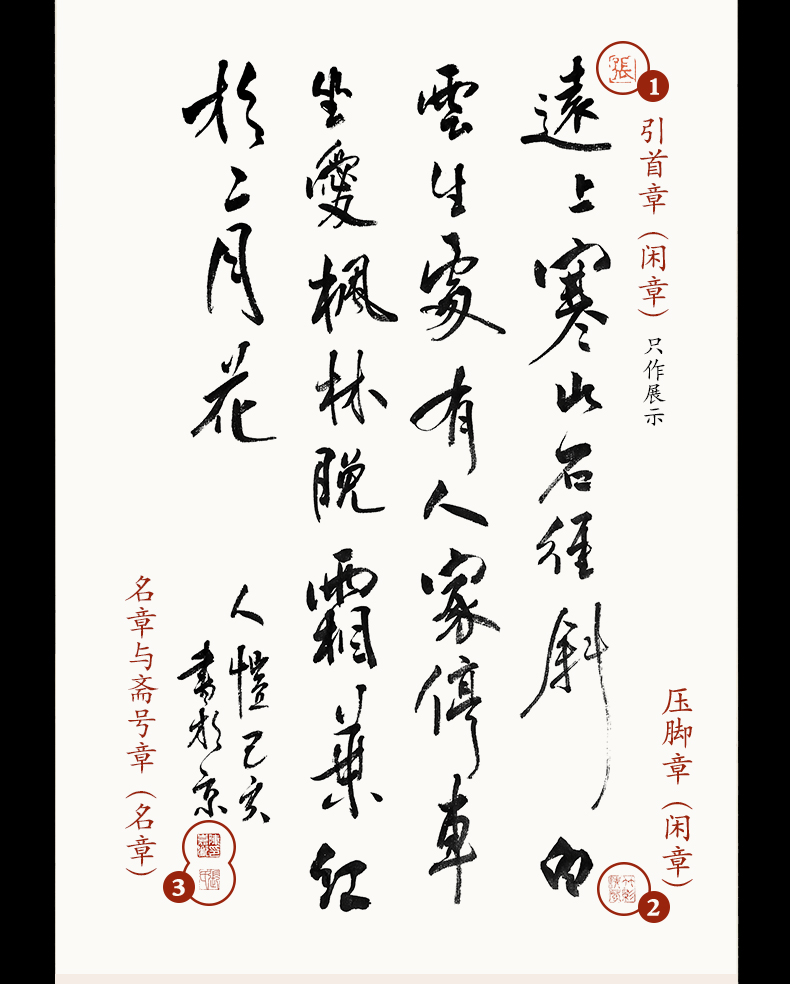 張
1
引首章（闲章）
只作展示
遠上寒山石徑斜白
雲生處有人家停車
坐愛楓林晚霜葉紅
於二月花
人愷己亥
書於京
压脚章（闲章）
2
名章与斋号章（名章）
3